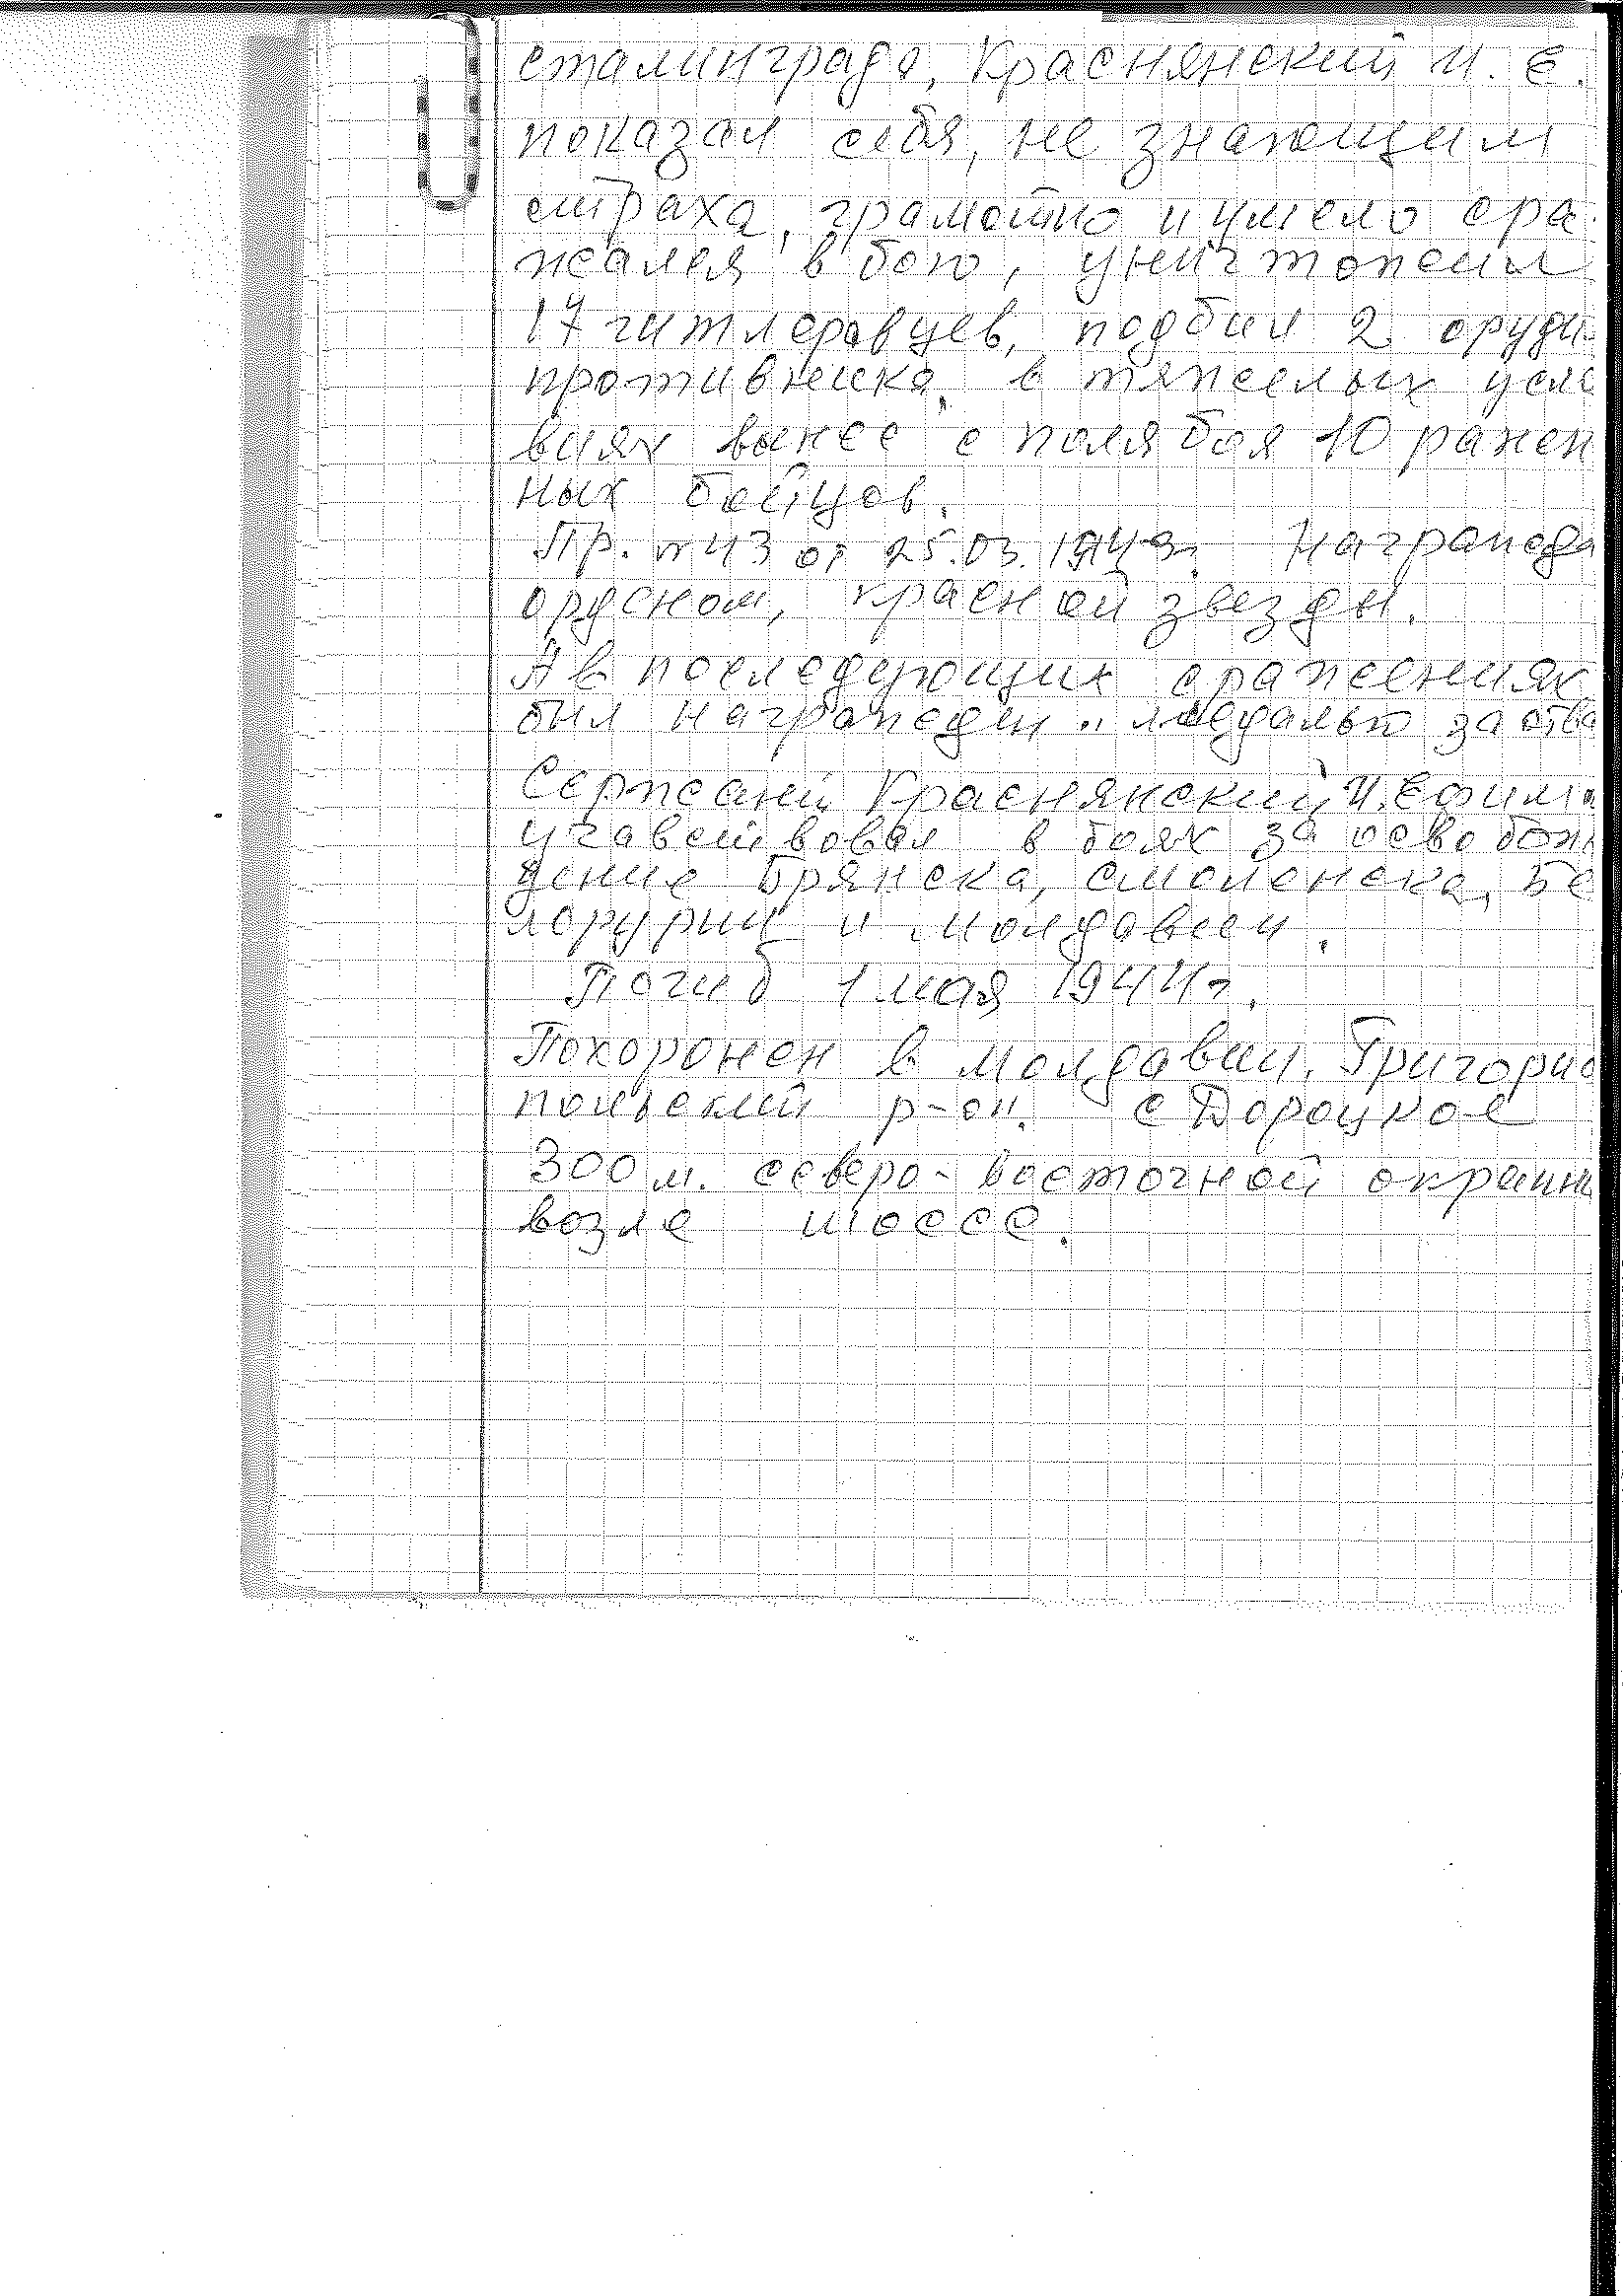 сталинграда, Краснянский И. Е.
показал себя, не знающим
страха, грамотно и умело сра
жался в бою, уничтожил
17 гитлеровцев, подбил 2 оруди
противника, в тяжелых усло
виях вынес с поля боя 10 ранен
ных бойцов.
Пр. № 43 от 25.03.1943г. Награжде
орденом, красной звезды.
А в последующих сражениях
был награжден " медалью за отва
Сержант Краснянский И. Ефим
учавствовал в боях за освобож
дение Брянска, Смоленска, Бе
лорурии и Молдавии.
Погиб 1 мая 1944г.
Похоронен в Молдавии, Григорио
польский р-он. с Дороцкое
300 м. северо-восточной окраины
возле шоссе.